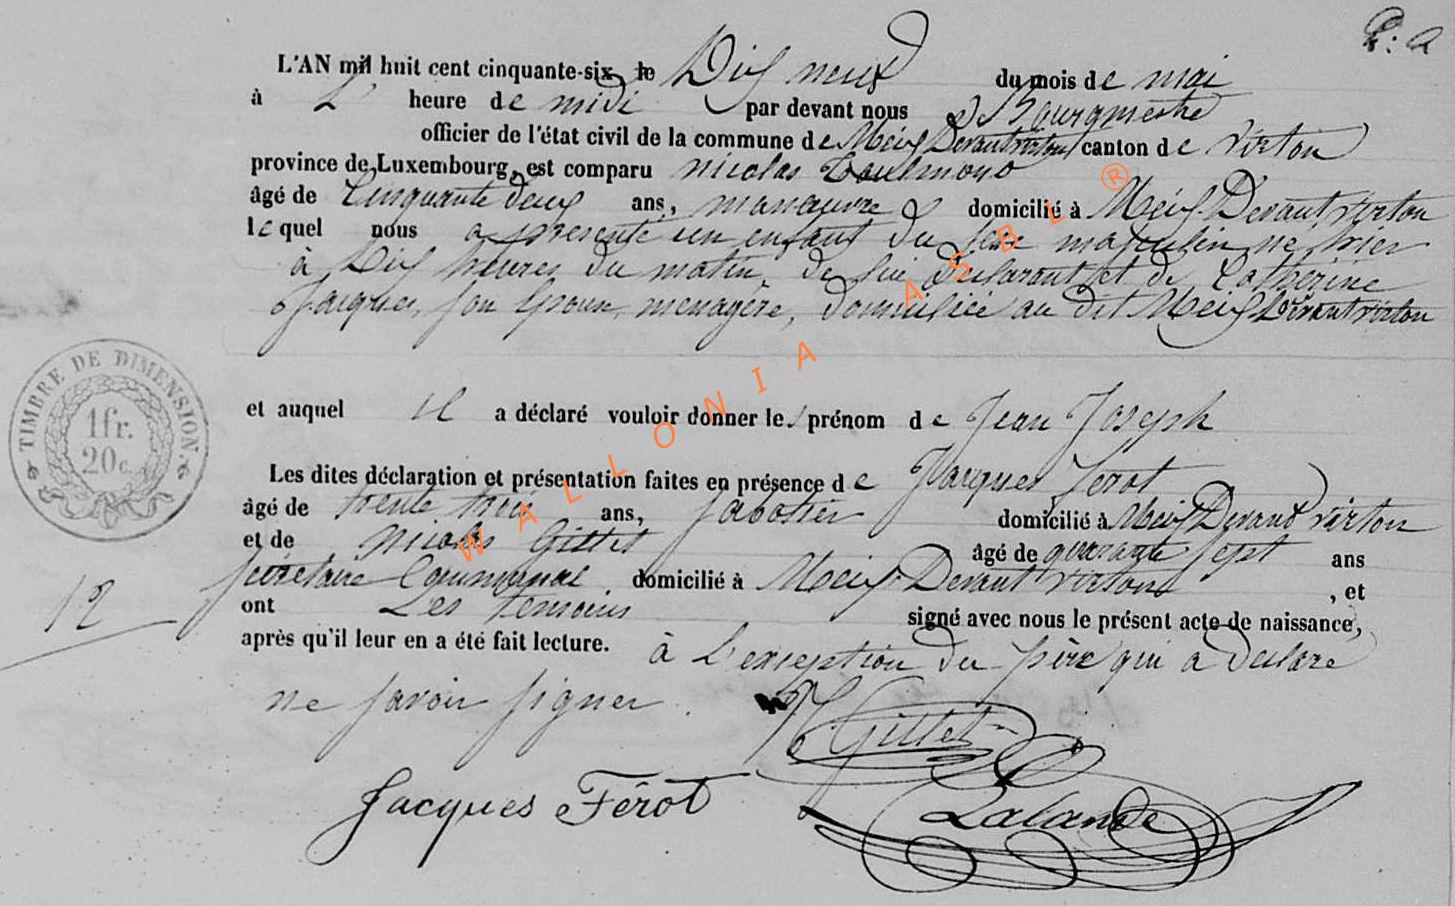 P: a
L'AN mil huit cent cinquante-six le Dix neuf du mois de mai
à L' heure de midi par devant nous Bourgmestre
officier de l'état civil de la commune de Meix Devant virton canton de virton
province de Luxembourg, est comparu nicolas Toulmond
âgé de Cinquante deux ans, manœuvre domicilié à Meix-Devant virton
lequel nous a présenté un enfant du sexe masculin né hier
à Dix heures du matin, de lui Déclarant et de Catherine
Jacques, son épouse, menagère, domiciliée au dit Meix Devant virton
et auquel il a déclaré vouloir donner les prénom de Jean Joseph
Les dites déclaration et présentation faites en présence de Jacques Ferot
âgé de trente trois ans, sabotier domicilié à Meix Devant virton
et de Nicolas Gillet âgé de quarante sept ans
secrétaire Communal domicilié à Meix-Devant virton , et
ont Les temoins signé avec nous le présent acte de naissance,
après qu'il leur en a été fait lecture. à L'exception du père qui a declaré
ne savoir signer.
Gillet
Jacques Férot
Lalande
TIMBRE DE DIMENSION
1 fr.
20 c.
12
WALLONIA ASBL ®